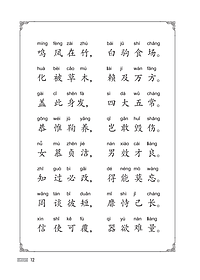 míng fèng zài zhú    bái jū shí chǎng
鸣凤在竹，    白驹食场。
huà bèi cǎo mù    lài jí wàn fāng
化被草木，    赖及万方。
gài cǐ shēn fà    sì dà wǔ cháng
盖此身发，    四大五常。
gōng wéi jū yǎng    qǐ gǎn huǐ shāng
恭惟鞠养，    岂敢毁伤。
nǚ mù zhēn jié    nán xiào cái liáng
女慕贞洁，    男效才良。
zhī guò bì gǎi    dé néng mò wàng
知过必改，    得能莫忘。
wǎng tán bǐ duǎn    mǐ shì jǐ cháng
罔谈彼短，    靡恃己长。
xìn shǐ kě fù    qì yù nán liáng
信使可覆，    器欲难量。
12